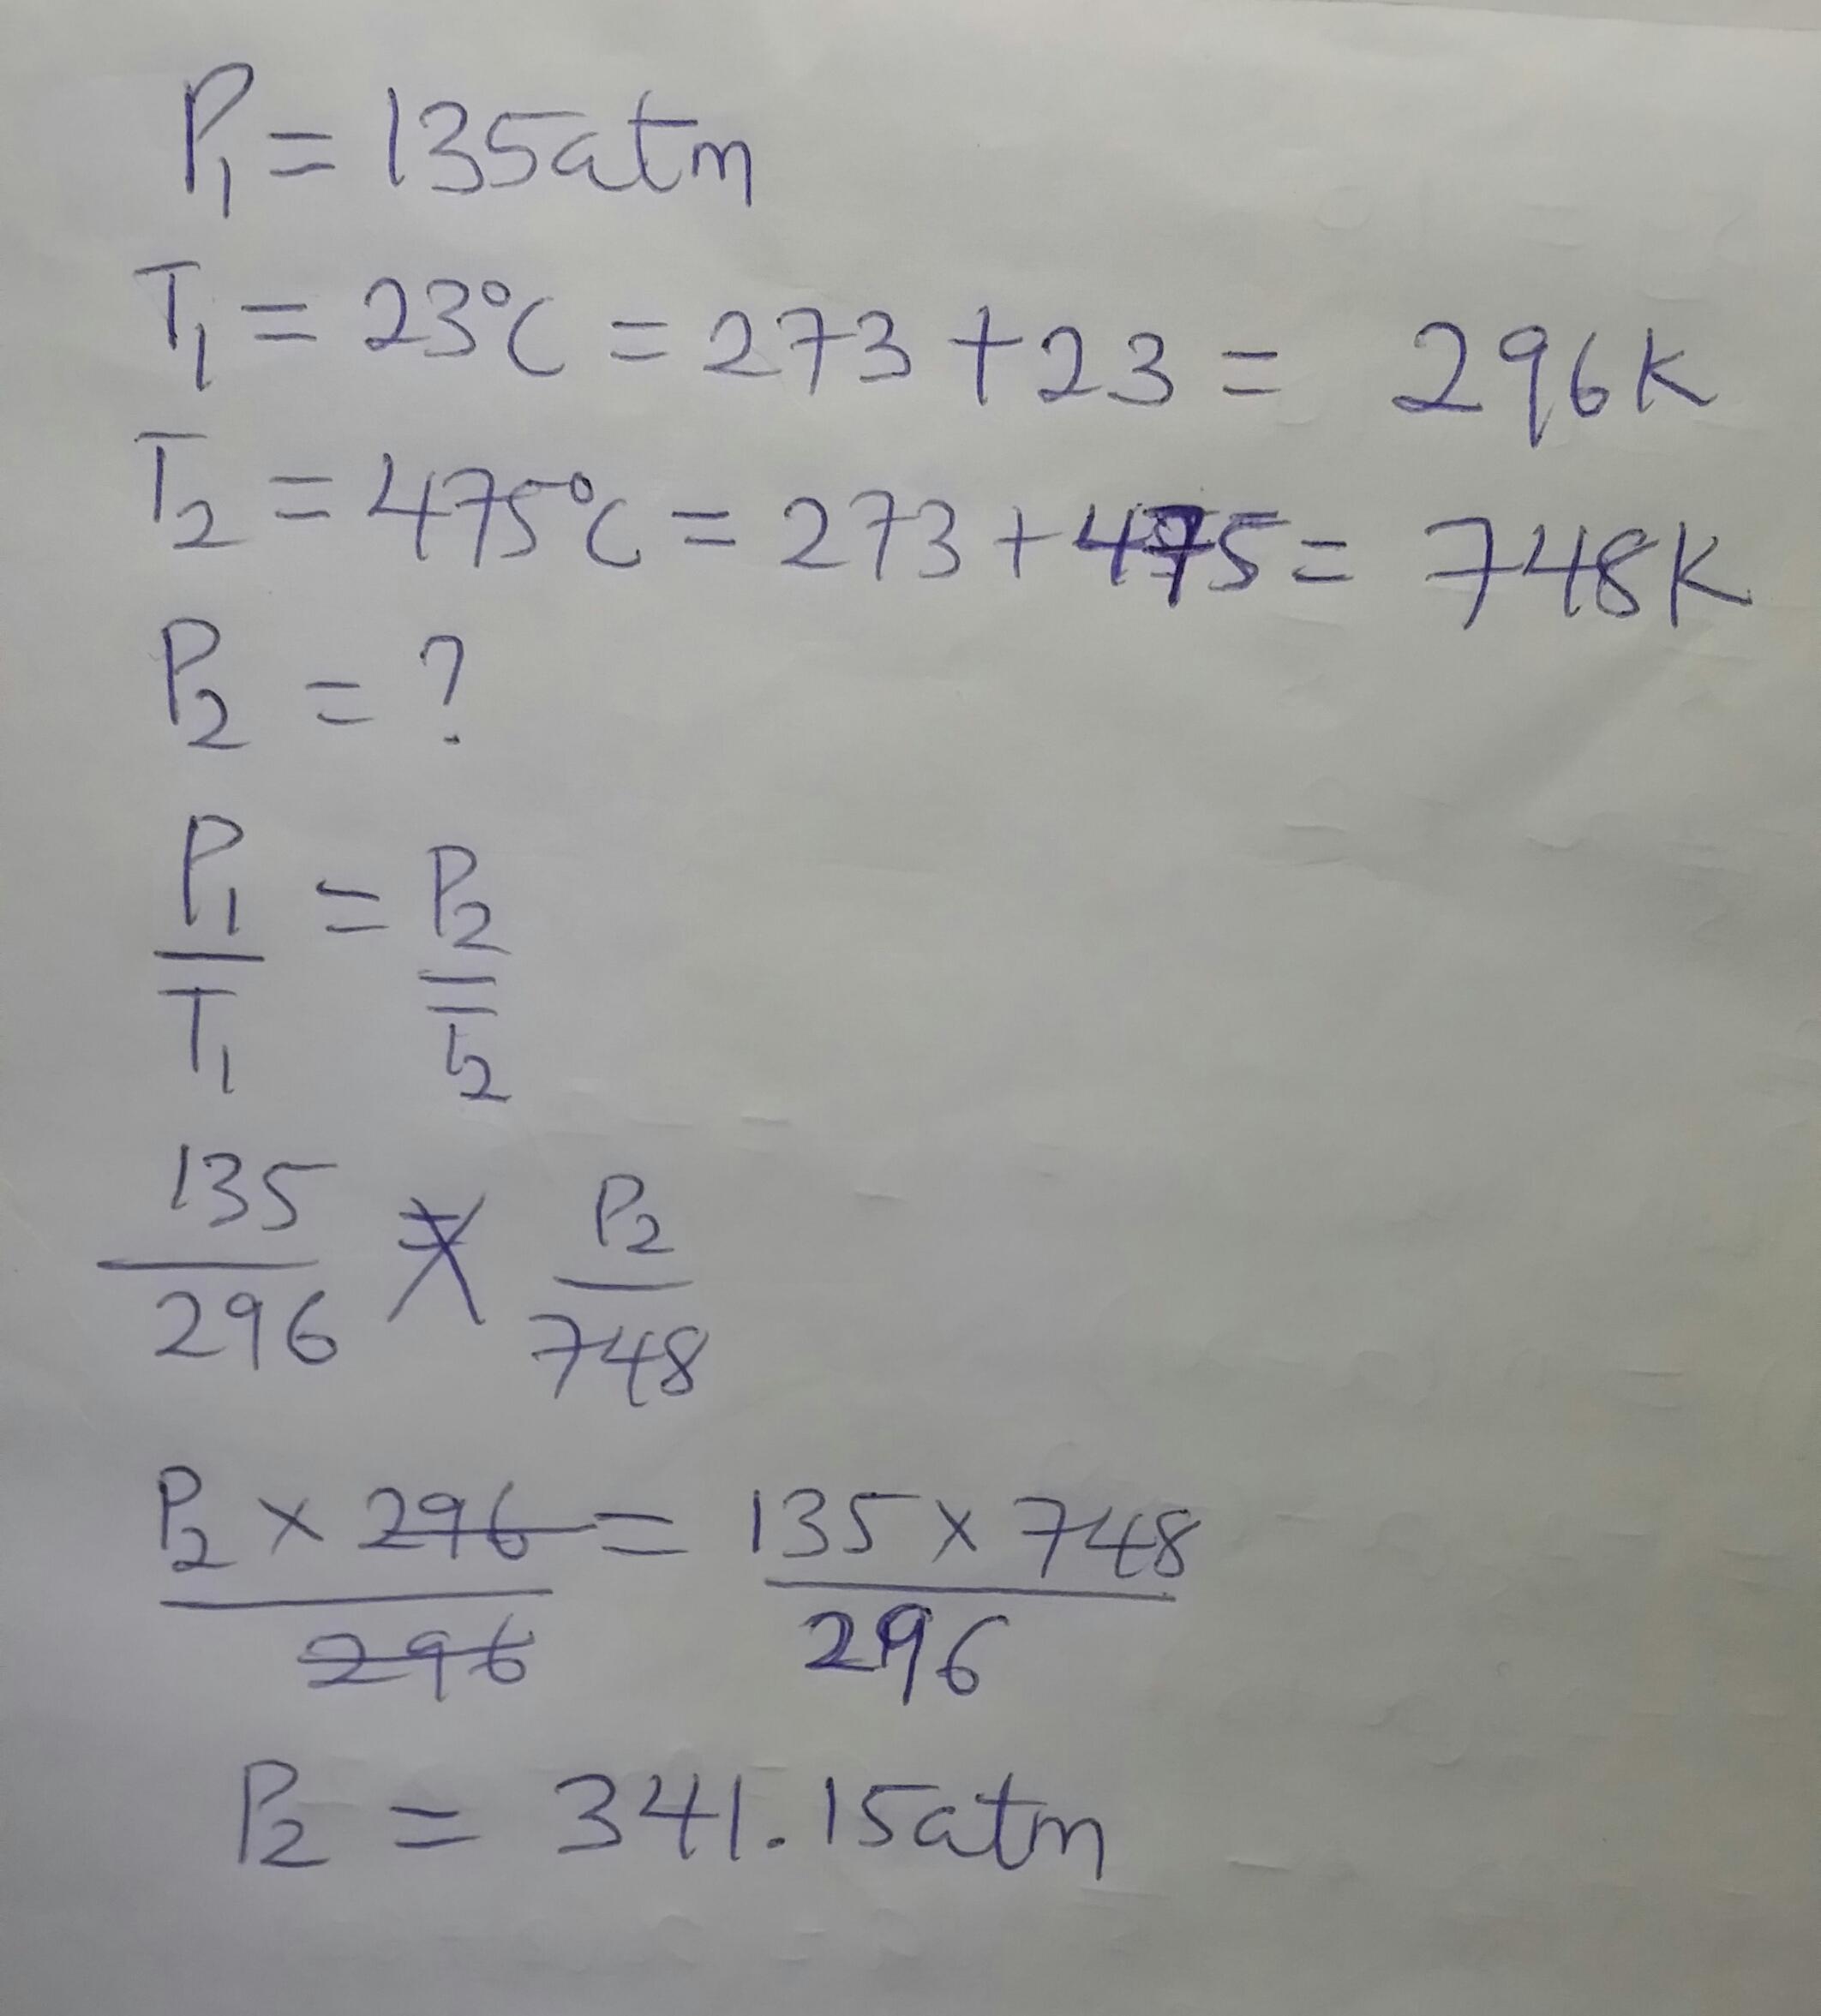 P₁ = 135atm
T₁ = 23°C = 273 + 23 = 296K
T₂ = 475°C = 273 + 475 = 748K
P₂ = ?
P₁ = P₂
T₁ T₂
135 = P₂
296 748
P₂ × 296 = 135 × 748
296 296
P₂ = 341.15atm